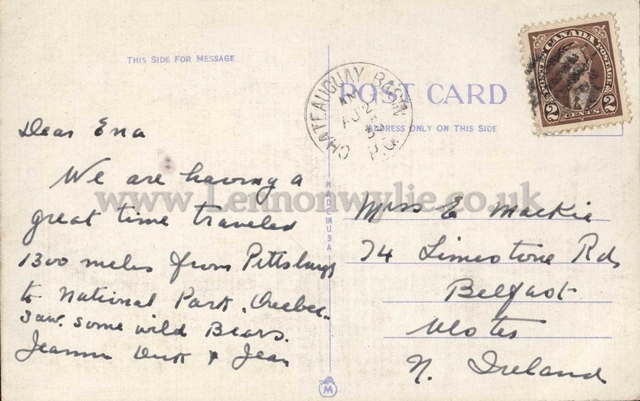 THIS SIDE FOR MESSAGE
POST CARD
ADDRESS ONLY ON THIS SIDE
CANADA
POSTES POSTAGE
2 CENTS 2
CHATEAUGUAY BASIN
P.Q.
MADE IN USA
www.Lennonwylie.co.uk
Dear Ena
We are having a
great time traveled
1300 meles from Pittsburgh
to National Park, Quebec.
Saw some wild Bears.
Jeannie & Jean
Miss E Mackie
74 Limestone Rd
Belfast
Ulster
N. Ireland
M